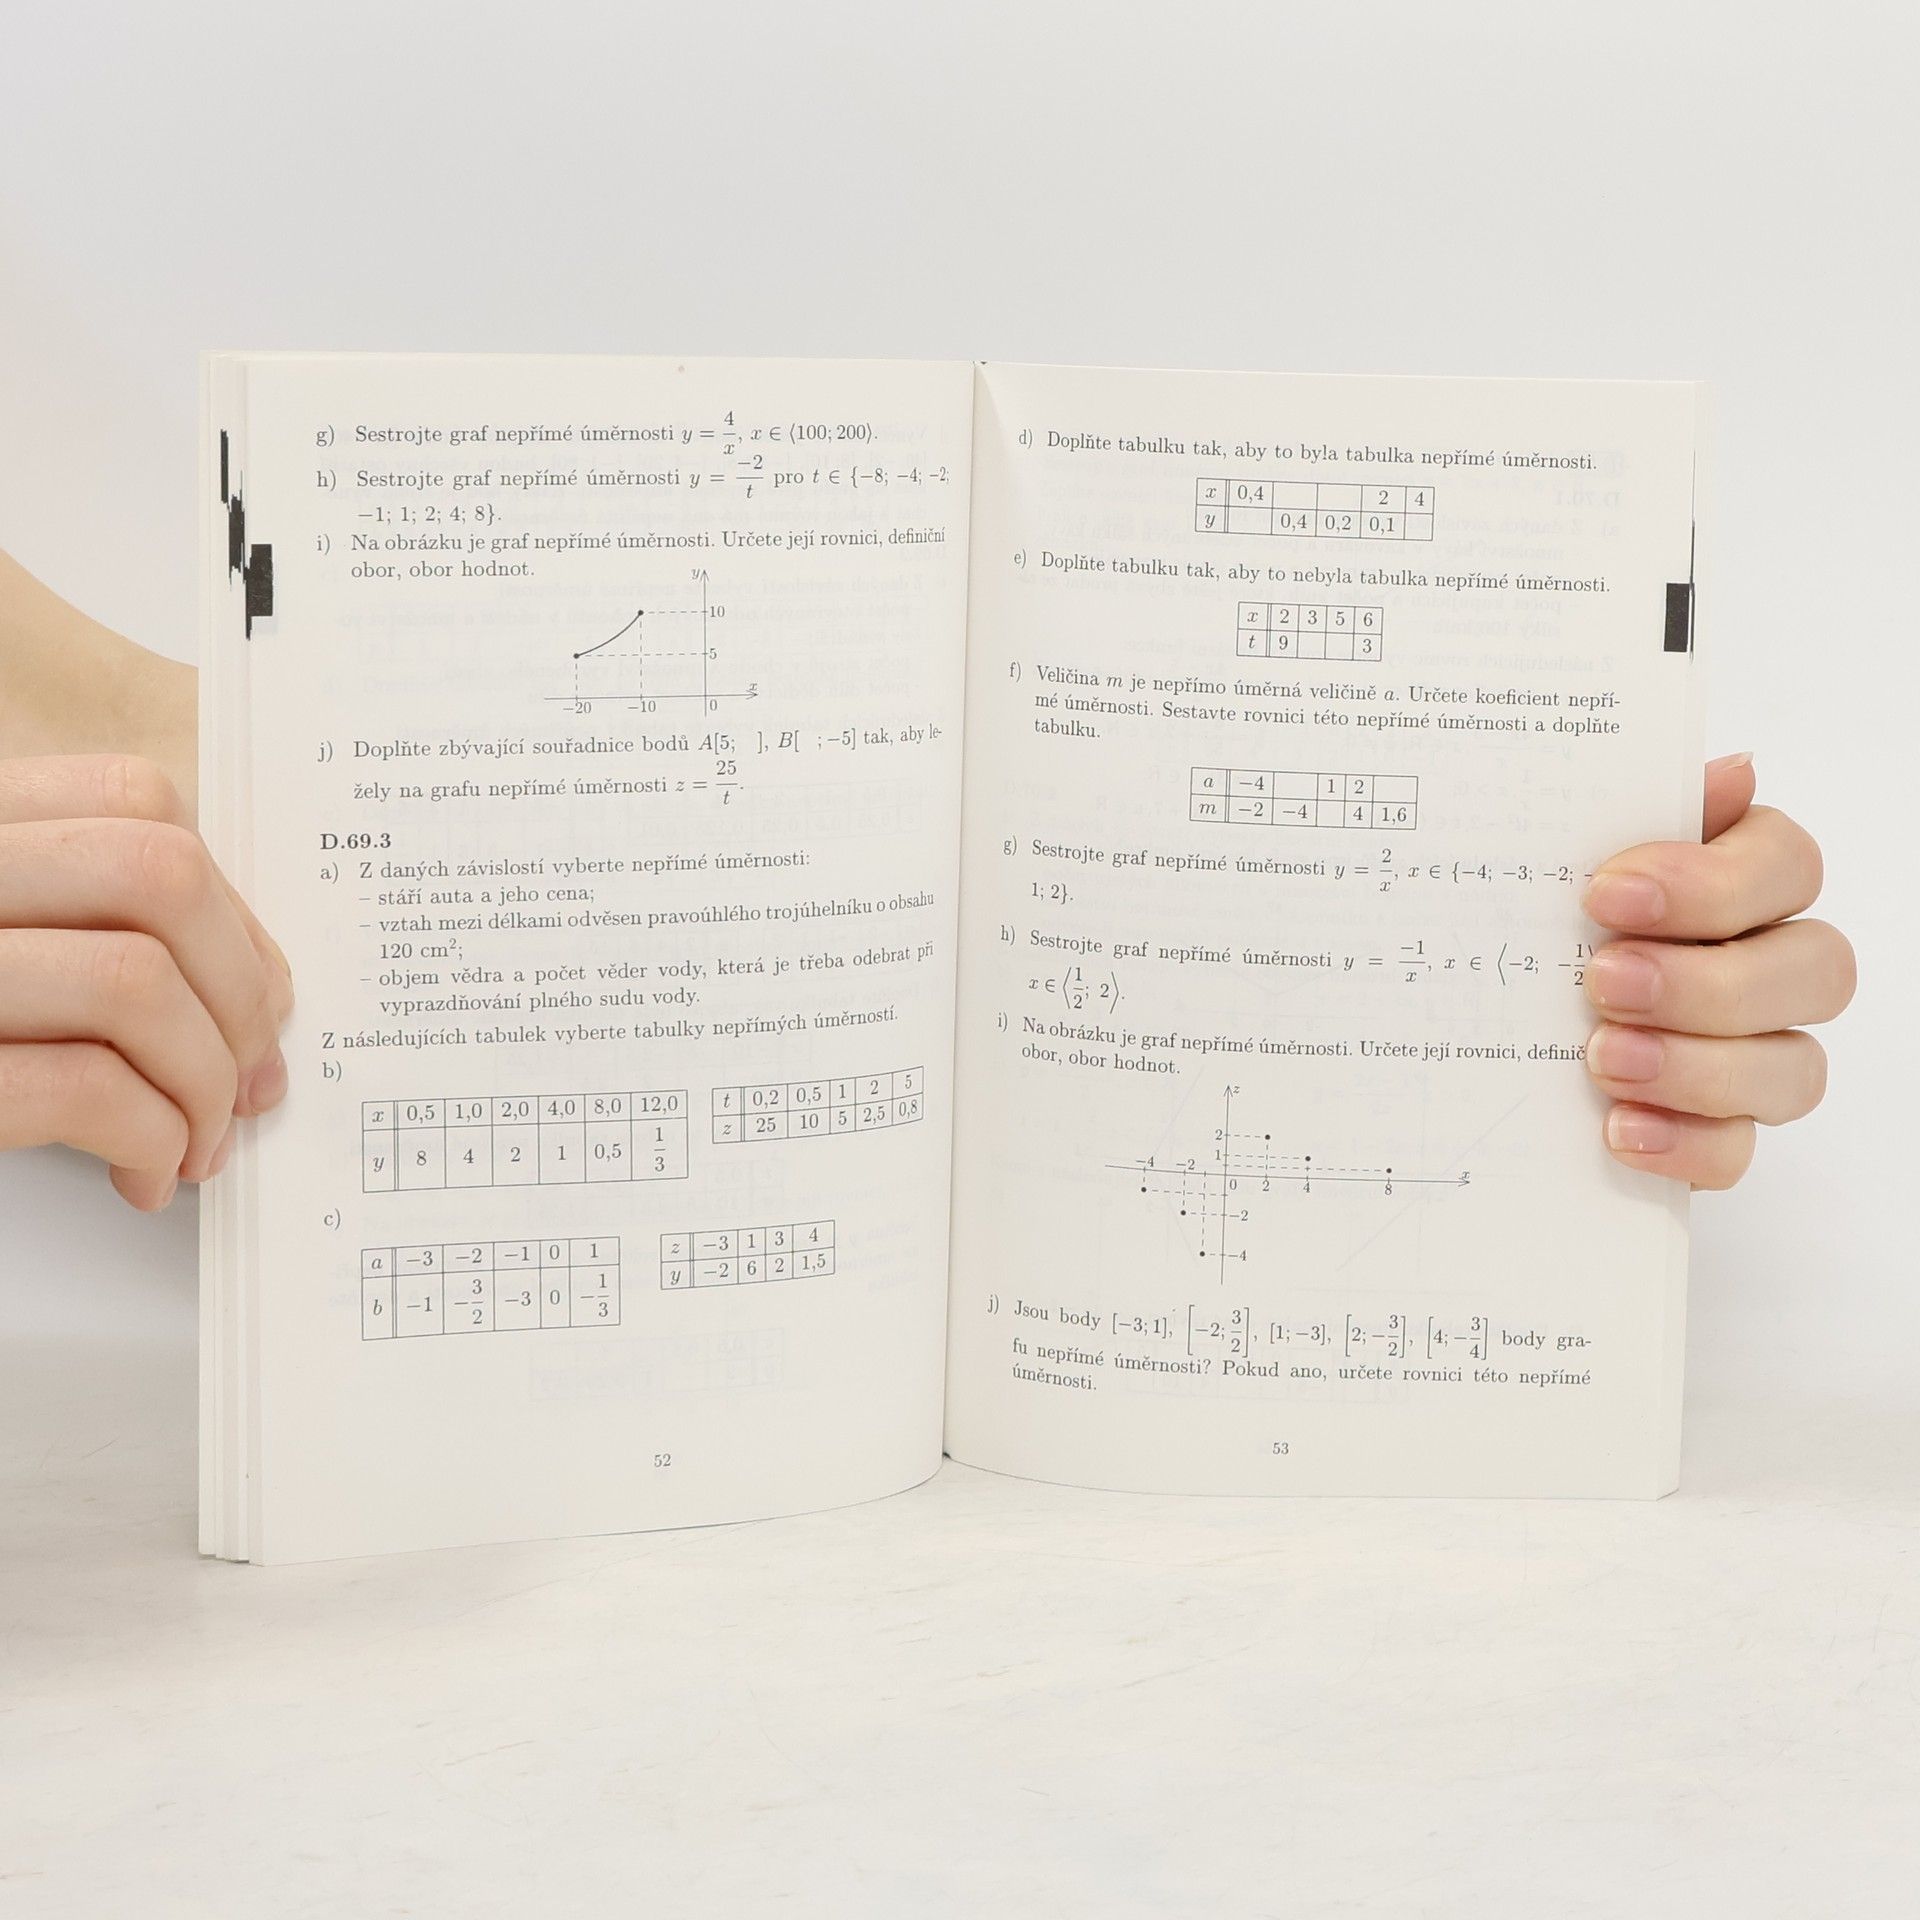 g) Sestrojte graf nepřímé úměrnosti y = 4/x, x ∈ ⟨100; 200⟩.
h) Sestrojte graf nepřímé úměrnosti y = −2/t pro t ∈ {−8; −4; −2;
−1; 1; 2; 4; 8}.
i) Na obrázku je graf nepřímé úměrnosti. Určete její rovnici, definiční
obor, obor hodnot.
y
10
5
x
−20 −10 0
j) Doplňte zbývající souřadnice bodů A[5; ], B[ ; −5] tak, aby le-
žely na grafu nepřímé úměrnosti z = 25/t.
D.69.3
a) Z daných závislostí vyberte nepřímé úměrnosti:
– stáří auta a jeho cena;
– vztah mezi délkami odvěsen pravoúhlého trojúhelníku o obsahu
120 cm²;
– objem vědra a počet věder vody, která je třeba odebrat při
vyprazdňování plného sudu vody.
Z následujících tabulek vyberte tabulky nepřímých úměrností.
b)
x 0,5 1,0 2,0 4,0 8,0 12,0
y 8 4 2 1 0,5 1/3
t 0,2 0,5 1 2 5
z 25 10 5 2,5 0,8
c)
a −3 −2 −1 0 1
b −1 −3/2 −3 0 −1/3
z −3 1 3 4
y −2 6 2 1,5
52
d) Doplňte tabulku tak, aby to byla tabulka nepřímé úměrnosti.
x 0,4 2 4
y 0,4 0,2 0,1
e) Doplňte tabulku tak, aby to nebyla tabulka nepřímé úměrnosti.
x 2 3 5 6
t 9 3
f) Veličina m je nepřímo úměrná veličině a. Určete koeficient nepří-
mé úměrnosti. Sestavte rovnici této nepřímé úměrnosti a doplňte
tabulku.
a −4 1 2
m −2 −4 4 1,6
g) Sestrojte graf nepřímé úměrnosti y = 2/x, x ∈ {−4; −3; −2; −
1; 2}.
h) Sestrojte graf nepřímé úměrnosti y = −1/x, x ∈ ⟨−2; −1/2⟩
x ∈ ⟨1/2; 2⟩.
i) Na obrázku je graf nepřímé úměrnosti. Určete její rovnici, definič
obor, obor hodnot.
z
2
1
−4 −2 x
0 2 4 8
−2
−4
j) Jsou body [−3; 1], [−2; 3/2], [1; −3], [2; −3/2], [4; −3/4] body gra-
fu nepřímé úměrnosti? Pokud ano, určete rovnici této nepřímé
úměrnosti.
53